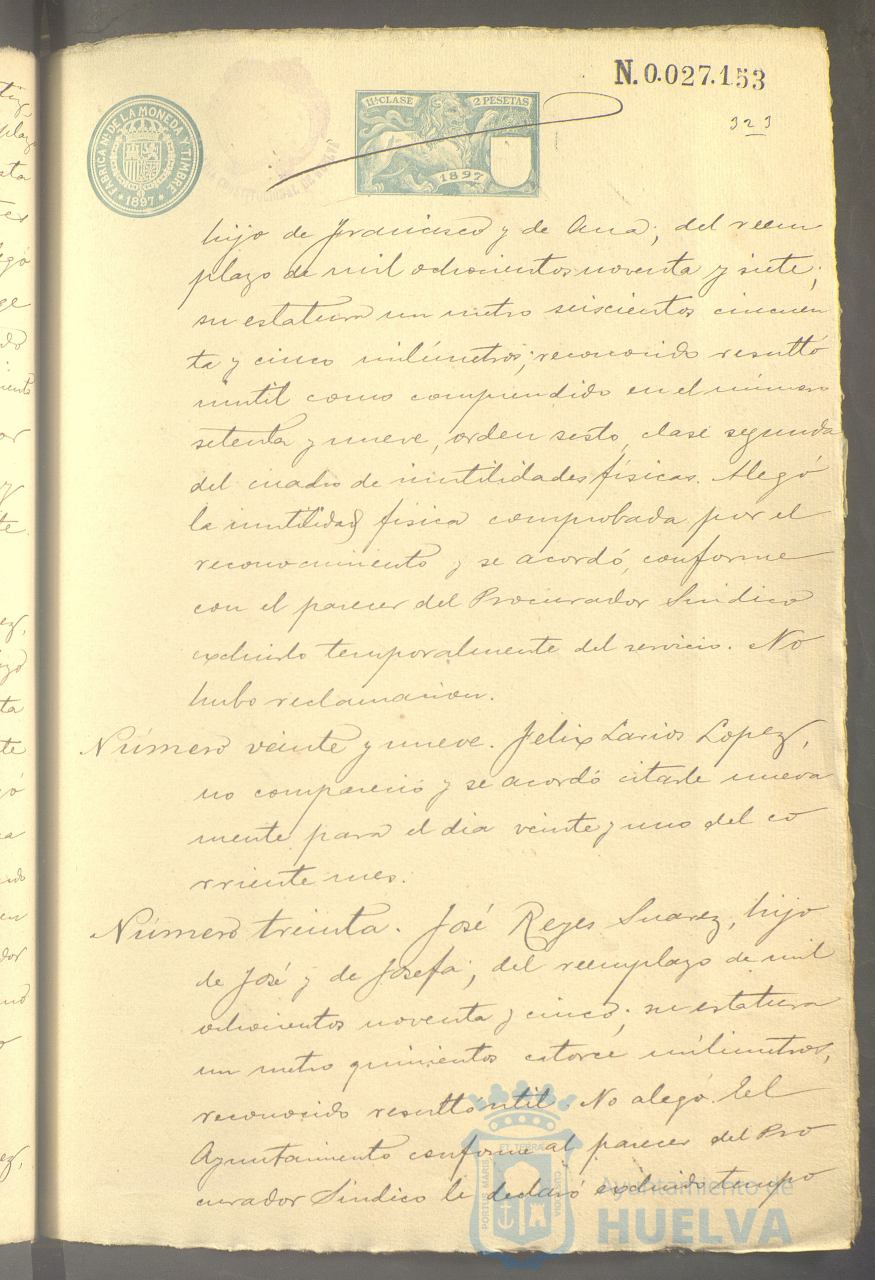 N. 0.027.153
323
FÁBRICA Nal. DE LA MONEDA Y TIMBRE
1897
11ª CLASE
2 PESETAS
1897
hijo de Francisco y de Ana; del reem
plazo de mil ochocientos noventa y siete;
su estatura un metro seiscientos cincuen
ta y cinco milímetros; reconocido resultó
inutil como comprendido en el número
setenta y nueve, orden sesto, clase segunda
del cuadro de inutilidades físicas. Alegó
la inutilidad física comprobada por el
reconocimiento y se acordó, conforme
con el parecer del Procurador Síndico
excluirlo temporalmente del servicio. No
hubo reclamación.
Número veinte y nueve. Felix Larios Lopez,
no compareció y se acordó citarle nueva
mente para el dia veinte y uno del co
rriente mes.
Número treinta. José Reyes Suarez, hijo
de José y de Josefa; del reemplazo de mil
ochocientos noventa y cinco; su estatura
un metro quinientos catorce milímetros,
reconocido resultó util. No alegó. El
Ayuntamiento conforme al parecer del Pro
curador Síndico le declaró excluido tempo
PORTUS MARIS
ET TERRÆ
CUSTODIA
Ayuntamiento de
HUELVA